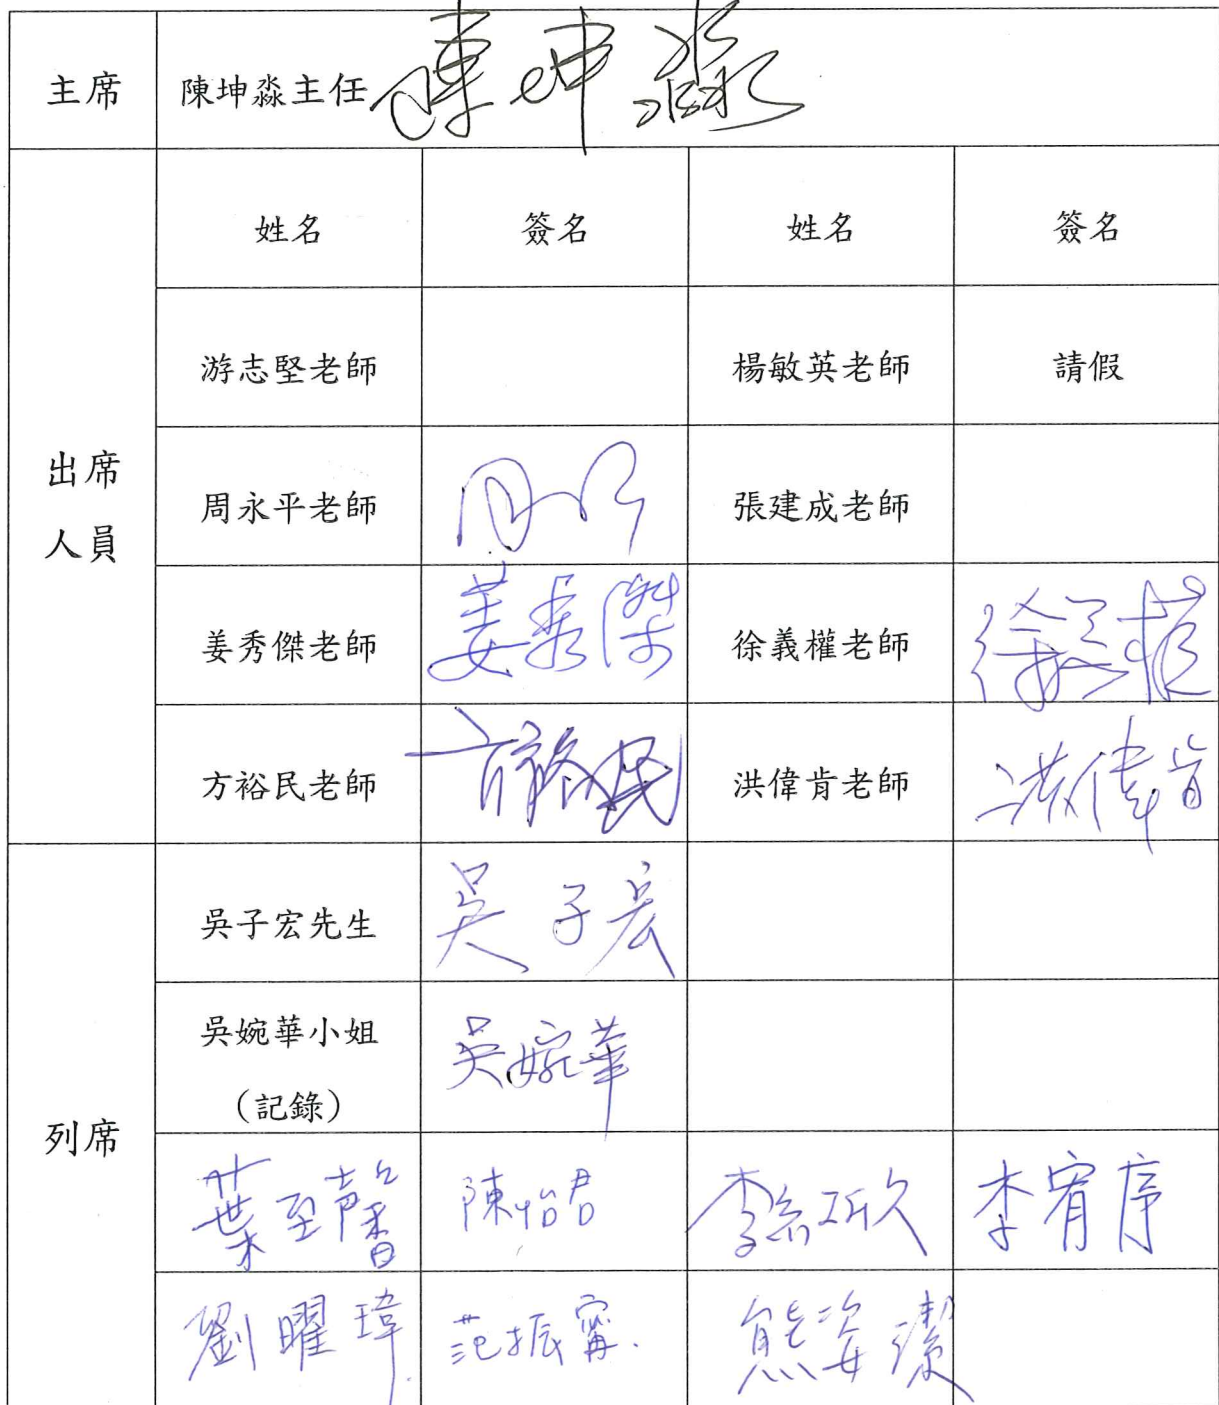 主席 陳坤淼主任 陳坤淼
姓名 簽名 姓名 簽名
游志堅老師 楊敏英老師 請假
出席
人員
周永平老師 張建成老師
姜秀傑老師 姜秀傑 徐義權老師 徐義權
方裕民老師 方裕民 洪偉肯老師 洪偉肯
吳子宏先生 吳子宏
吳婉華小姐 吳婉華
(記錄)
列席
葉至馨 陳怡君 李宥序
劉曜瑋 范振甯 熊姿潔